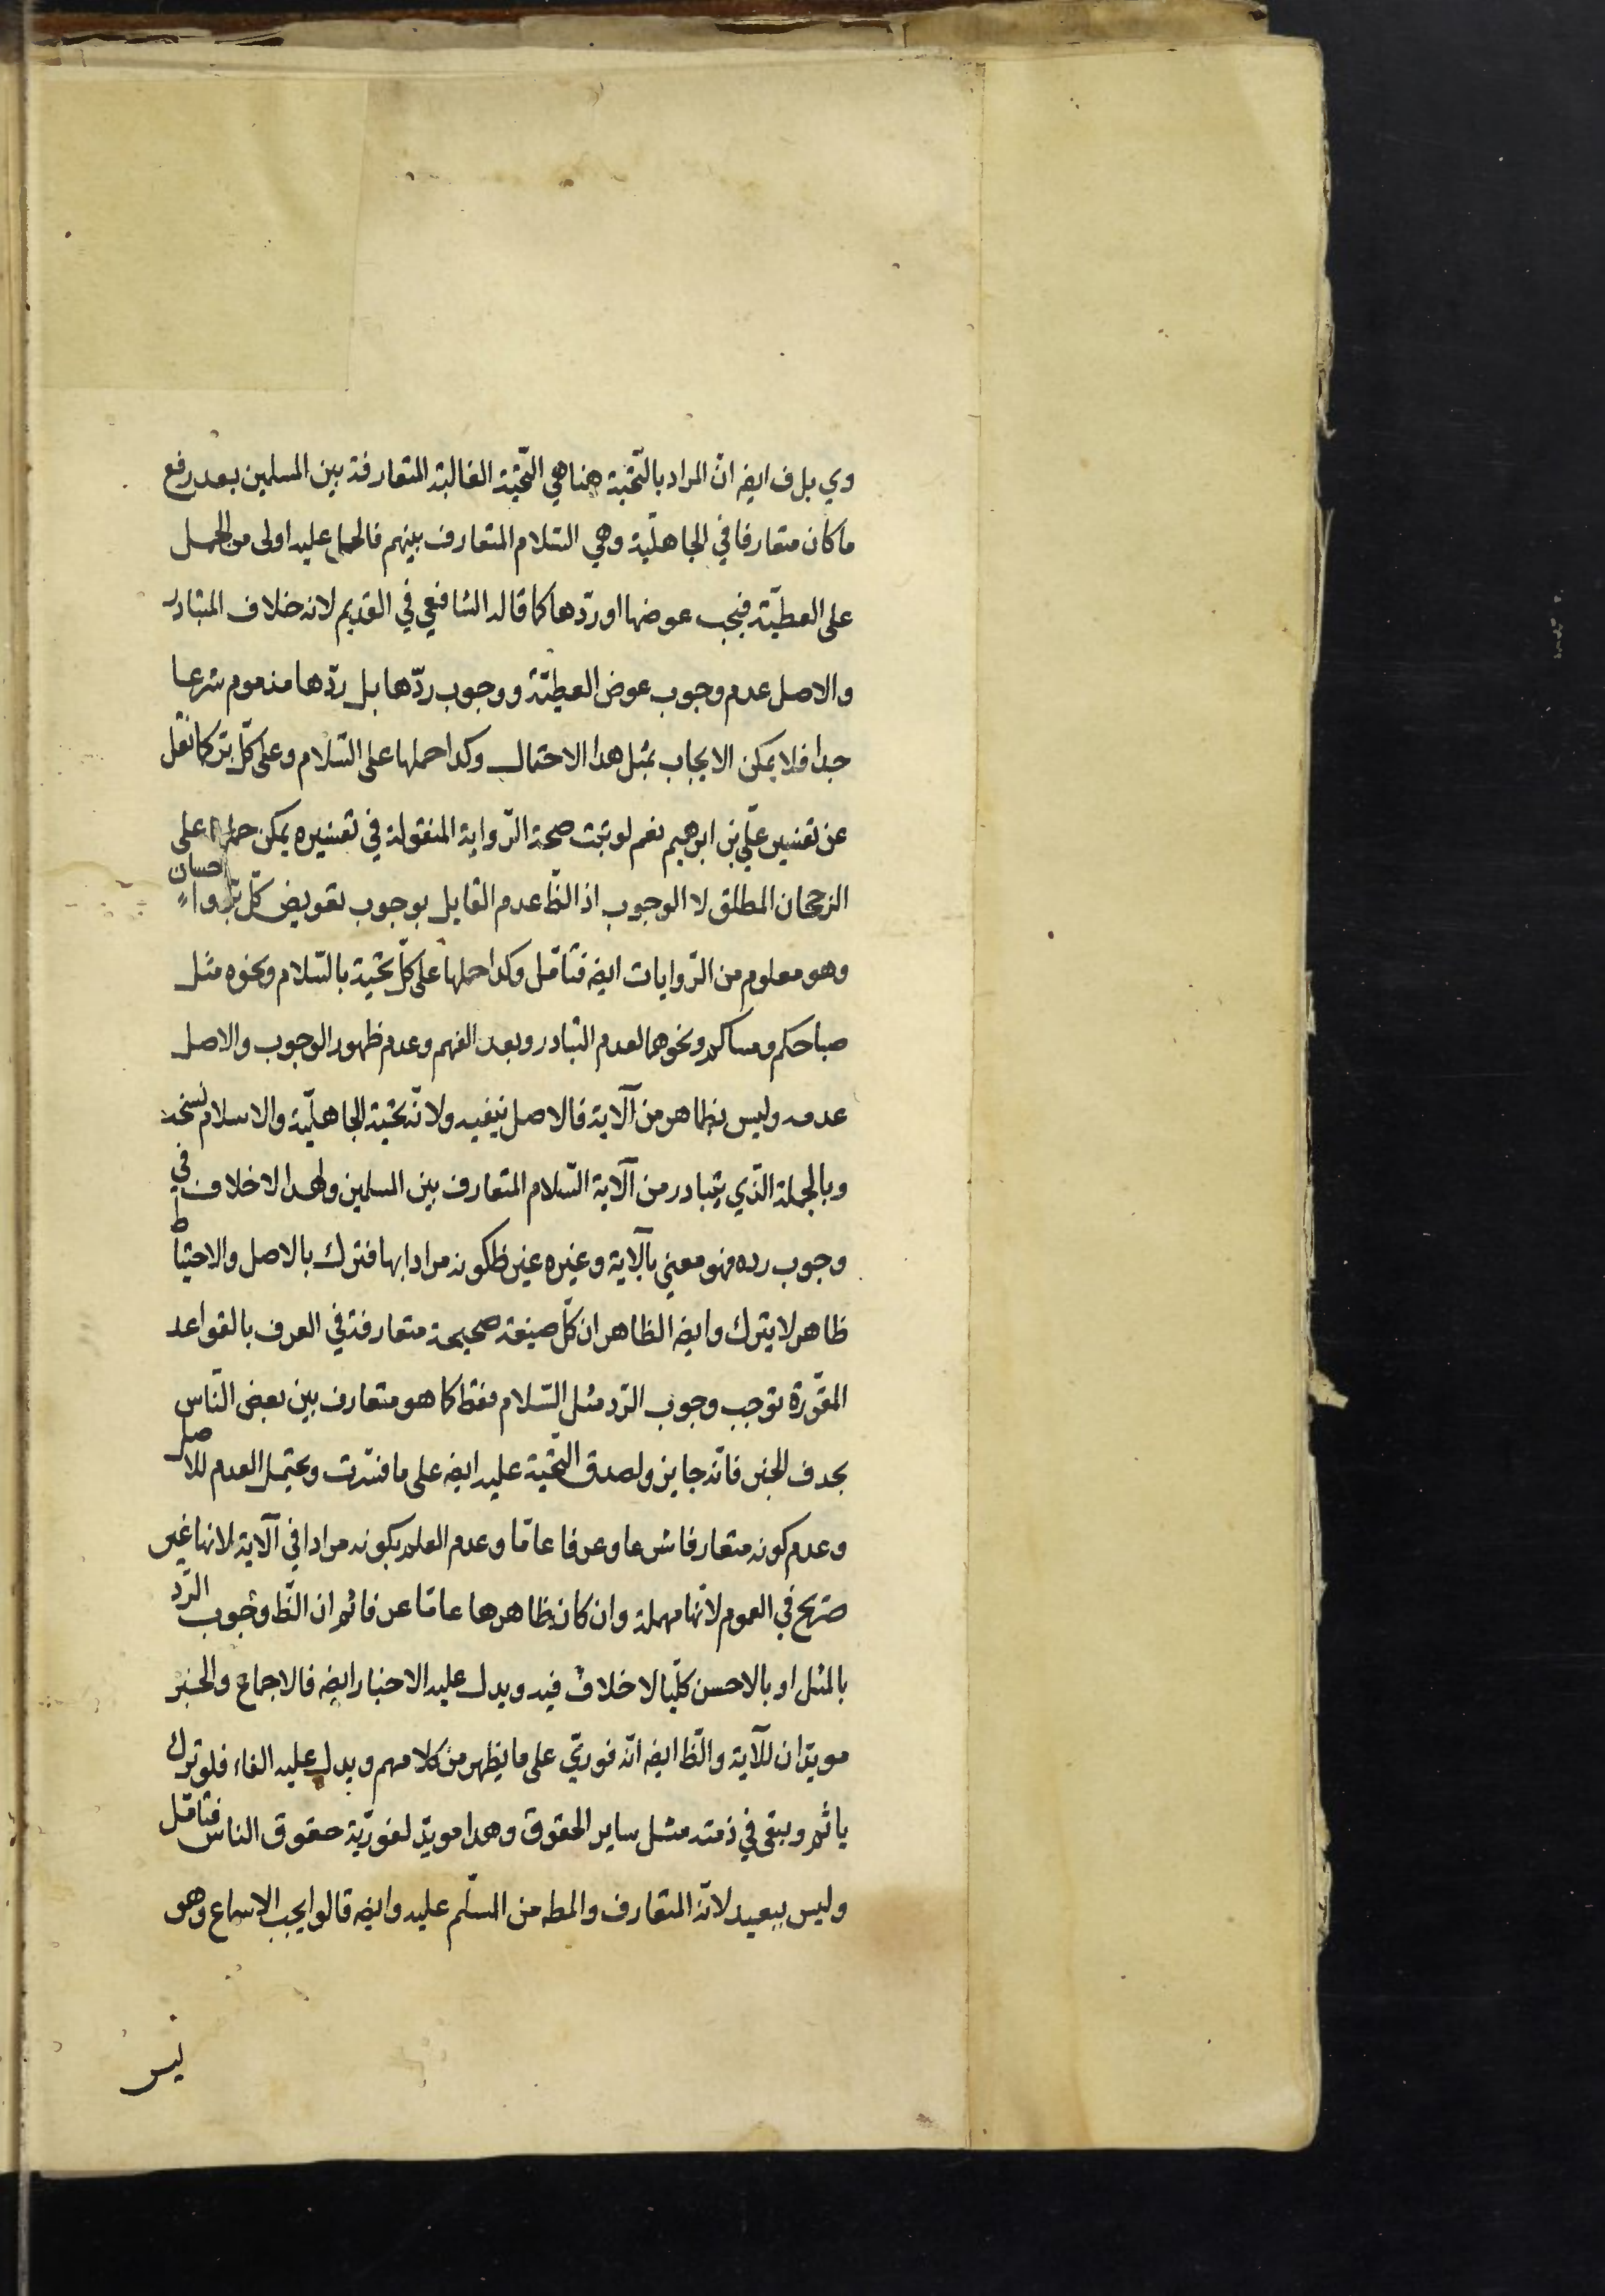 وي بل ف ايضا انّ المراد بالتّحيّة هنا هي التّحيّة الغالبة المتعارفة بين المسلمين بعد رفع
ما كان متعارفا في الجاهليّة وهي السّلام المتعارف بينهم فالحمل عليه اولى من الحمل
على العطيّة فيجب عوضها او ردّها كما قاله الشافعي في القديم لانه خلاف المتبادر
والاصل عدم وجوب عوض العطيّة ووجوب ردّها بل ردّها مذموم شرعا
جدا فلا يمكن الايجاب بمثل هذا الاحتمال وكذا حملها على السّلام وعلى كلّ برّ كما نقل
عن تفسير عليّ بن ابرهيم نعم لو ثبت صحة الرّواية المنقولة في تفسيره يمكن حملها على
الرجحان المطلق لا الوجوب اذ الظّ عدم القايل بوجوب تعويض كلّ برّ واحسان
وهو معلوم من الرّوايات ايضا فتامّل وكذا حملها على كلّ تحيّة بالسّلام ونحوه مثل
صباحكم ومساكم ونحوهما لعدم التبادر وبعد الفهم وعدم ظهور الوجوب والاصل
عدمه وليس بظاهر من الآية فالاصل ينفيه ولانّه تحيّة الجاهليّة والاسلام نسخه
وبالجملة الذّي يتبادر من الآية السّلام المتعارف بين المسلمين ولهذا لا خلاف في
وجوب رده فهو معني بالآية وغيره غير ظ كونه مرادا بها فترك بالاصل والاحتياط
ظاهر لا يترك وايضا الظاهر ان كلّ صيغة صحيحة متعارفة في العرف بالقواعد
المقرّرة توجب وجوب الرّد مثل السّلام فقط كما هو متعارف بين بعض النّاس
بحذف الخبر فانّه جايز ولصدق التّحيّة عليه ايضا على ما فسّرت ويحتمل العدم للاصل
وعدم كونه متعارفا شرعا وعرفا عامّا وعدم العلم بكونه مرادا في الآية لانها غير
صريح في العموم لانّها مهملة وان كان ظاهرها عامّا عرفا ثم ان الظّ وجوب الرّد
بالمثل او بالاحسن كلّيا لا خلاف فيه ويدل عليه الاخبار ايضا فالاجماع والخبر
مويّدان للآية والظّ ايضا انّه فوريّ على ما يظهر من كلامهم ويدل عليه الفاء فلو ترك
ياثم ويبقى في ذمته مثل ساير الحقوق وهذا مويّد لفوريّة حقوق الناس فتامّل
وليس ببعيد لانّه المتعارف والمط من المسلّم عليه وايضا قالوا يجب الاسماع وهو
ليس